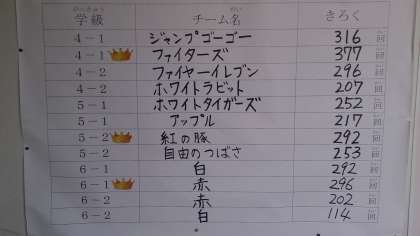 学級 チーム名 きろく
4-1 ジャンプゴーゴー 316回
4-1 ファイターズ 377回
4-2 ファイヤーイレブン 296回
4-2 ホワイトラビット 207回
5-1 ホワイトタイガーズ 252回
5-1 アップル 217回
5-2 紅の豚 292回
5-2 自由のつばさ 253回
6-1 白 292回
6-1 赤 296回
6-2 赤 202回
6-2 白 114回